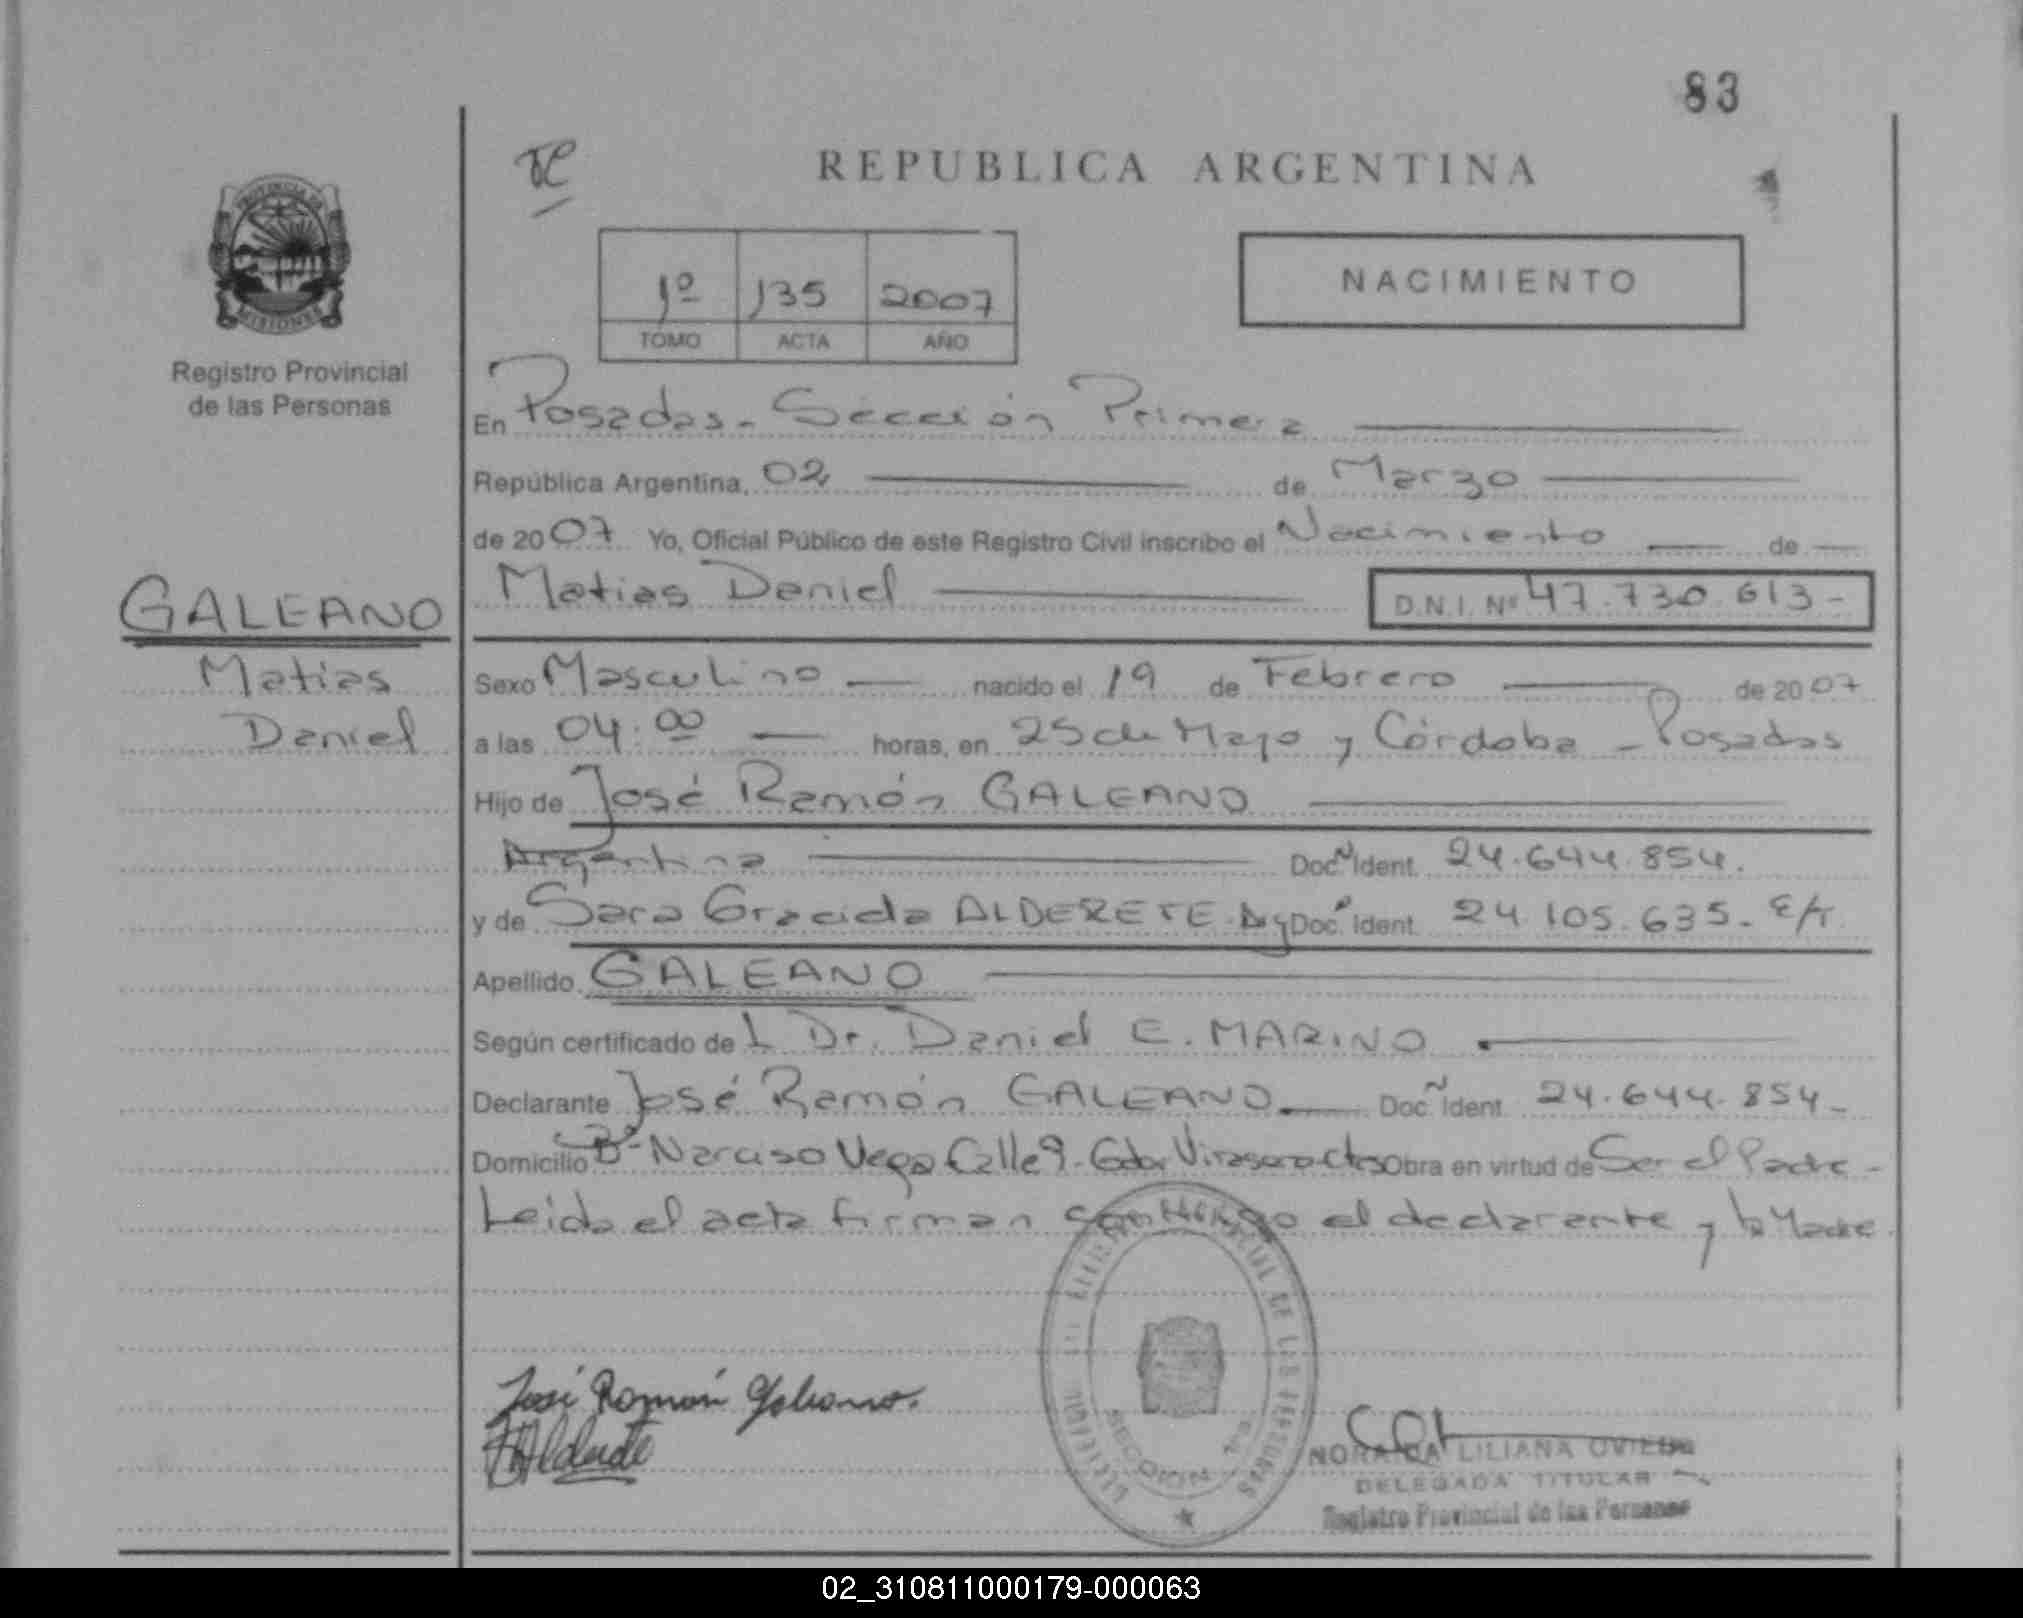 83
REPUBLICA ARGENTINA
PROVINCIA DE
MISIONES
Registro Provincial
de las Personas
1º 135 2007
TOMO ACTA AÑO
NACIMIENTO
En Posadas - Sección Primera
República Argentina, 02 de Marzo
de 2007 Yo, Oficial Público de este Registro Civil inscribo el Nacimiento de
Matias Daniel D.N.I. Nº 47.730.613-
GALEANO
Matias
Daniel
Sexo Masculino nacido el 19 de Febrero de 2007
a las 04:00 horas, en 25 de Mayo y Córdoba - Posadas
Hijo de José Ramón GALEANO
Argentina Doc. Ident. 24.644.854.
y de Sara Gracida ALDERETE. Arg Doc. Ident. 24.105.635.
Apellido GALEANO
Según certificado de L Dr. Daniel E. MARINO
Declarante José Ramón GALEANO Doc. Ident. 24.644.854-
Domicilio Bº Narciso Vega Calle 9. Gdor Virasoro Ctes Obra en virtud de Ser el Padre -
Leida el acta firman conmigo el declarante y la Madre
José Ramón Galeano.
Alderete
SECCION
LILIANA OVIEDO
DELEGADA TITULAR
Registro Provincial de las Personas
02_310811000179-000063